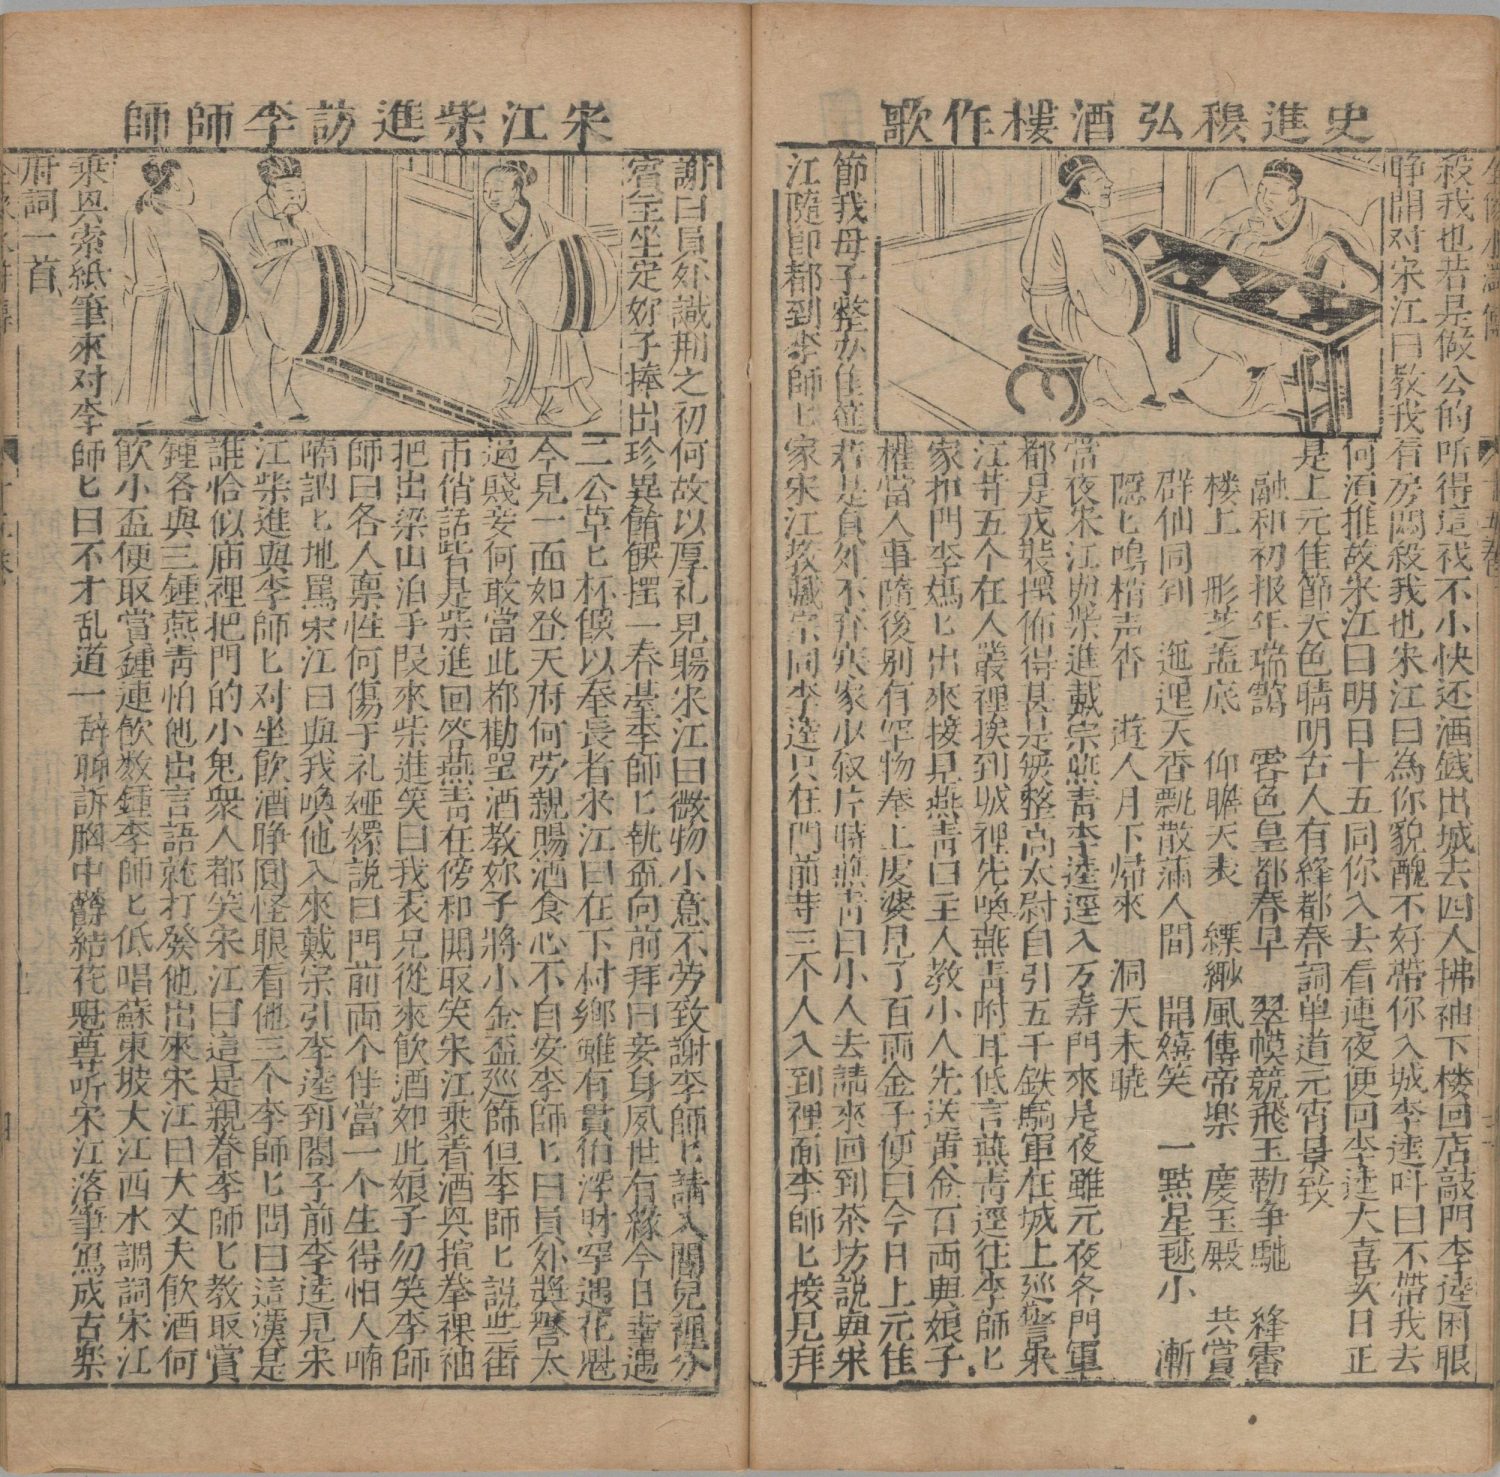 史進穆弘酒樓作歌
殺我也若是做公的所得這我不小快还酒錢出城去四人拂袖下楼回店敲門李逵困眼
睁開对宋江曰教我看房悶殺我也宋江曰為你貌醜不好帶你入城李逵呌曰不帶我去
何湏推故宋江曰明日十五同你入去看連夜便回李逵大喜次日正
是上元佳節天色晴明古人有絳都春詞单道元宵景致
融和初报年瑞靄　霽色皇都春早　翠幙競飛玉勒争馳　絳霄
楼上　形芝盖底　仰瞻天表　縹緲風傳帝樂　慶玉殿　共賞
群仙同到　迤逦天香飄散滿人間　開嬉笑　一點星毬小　漸
隠匕鳴梢声杳　遊人月下歸來　洞天未曉
當夜宋江與柴進戴宗燕青李逵逕入万寿門來是夜雖元夜各門軍
都是戎裝摆佈得甚是嚴整高太尉自引五千鉄騎軍在城上巡警宋
江等五个在人叢裡挨到城裡先喚燕青附耳低言燕青逕往李師匕
家扣門李媽匕出來接見燕青曰主人教小人先送黃金百両與娘子
權當人事隨後别有罕物奉上虔婆見了百両金子便曰今日上元佳
節我母子整办佳筵若是員外不弃寒家少叙片時燕青曰小人去請來回到茶坊説與宋
江隨即都到李師匕家宋江教戴宗同李逵只在門前等三个人入到裡面李師匕接見拜
宋江柴進訪李師師
謝曰員外識荆之初何故以厚礼見賜宋江曰微物小意不劳致謝李師匕請入閣兒裡分
賓主坐定妳子捧出珍異餚饌摆一春䑓李師匕執盃向前拜曰妾身夙世有緣今日幸遇
二公草匕杯饌以奉長者宋江曰在下村鄉雖有貫伯浮財罕遇花魁
今見一面如登天府何劳親賜酒食心不自安李師匕曰員外奨譽太
過賎妾何敢當此都勸罢酒教妳子將小金盃巡篩但李師匕説些街
市俏話皆是柴進回答燕青在傍和閧取笑宋江乗着酒興揎拳裸袖
把出梁山泊手段來柴進笑曰我表兄從來飲酒如此娘子勿笑李師
師曰各人禀性何傷于礼婭嬛説曰門前両个伴當一个生得怕人喃
喃訥匕地罵宋江曰與我喚他入來戴宗引李逵到閣子前李逵見宋
江柴進與李師匕对坐飲酒睁圓怪眼看他三个李師匕問曰這漢是
誰恰似庙裡把門的小鬼衆人都笑宋江曰這是親眷李師匕教取賞
鍾各與三鍾燕青怕他出言語就打發他出來宋江曰大丈夫飲酒何
飲小盃便取賞鍾連飲数鍾李師匕低唱蘇東坡大江西水調詞宋江
乗興索紙筆來对李師匕曰不才乱道一辞聊訴胸中欝結花魁尊听宋江落筆寫成古樂
府詞一首